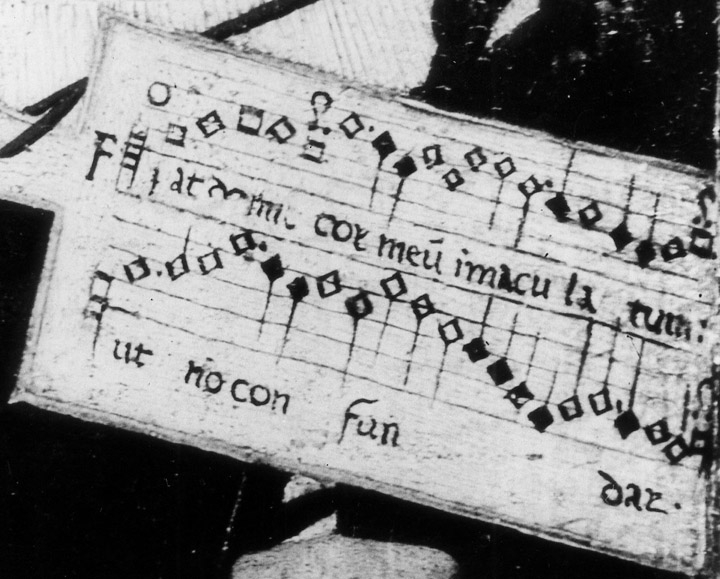 Fiat domi. cor meū imacu la tum:
ut nō con fun dar.